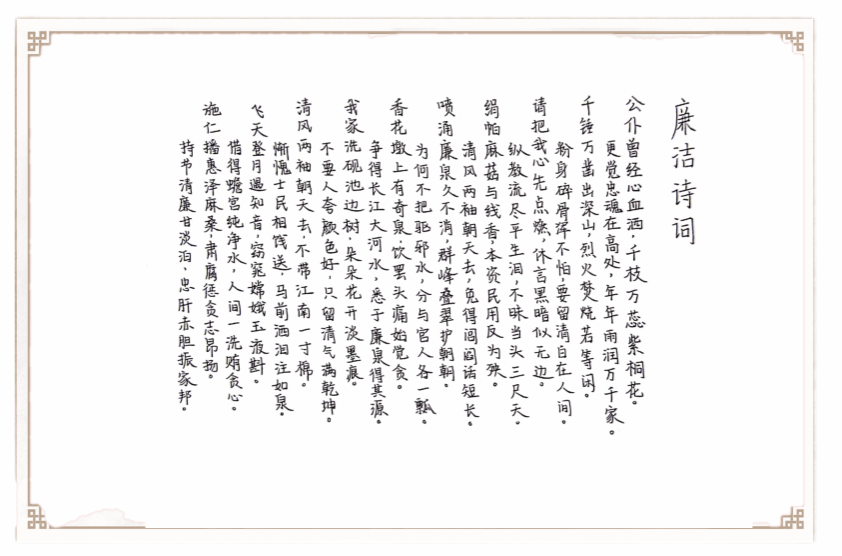 廉洁诗词
公仆曾经心血洒,千枝万蕊紫桐花。
更觉忠魂在高处,年年雨润万千家。
千锤万凿出深山,烈火焚烧若等闲。
粉身碎骨浑不怕,要留清白在人间。
请把我心先点燃,休言黑暗似无边。
纵教流尽平生泪,不昧当头三尺天。
绢帕麻菇与线香,本资民用反为殃。
清风两袖朝天去,免得阎阎话短长。
喷涌廉泉久不消,群峰叠翠护朝朝。
为何不把驱邪水,分与官人各一瓢。
香花墩上有奇泉,饮罢头痛始觉贪。
争得长江大河水,悉于廉泉得其源。
我家洗砚池边树,朵朵花开淡墨痕。
不要人夸颜色好,只留清气满乾坤。
清风两袖朝天去,不带江南一寸棉。
惭愧士民相饯送,马前洒泪注如泉。
飞天登月遇知音,窈窕嫦娥玉液斟。
借得蟾宫纯净水,人间一洗贿贪心。
施仁播惠泽麻桑,肃腐惩贪志昂扬。
持节清廉甘淡泊,忠肝赤胆振家邦。